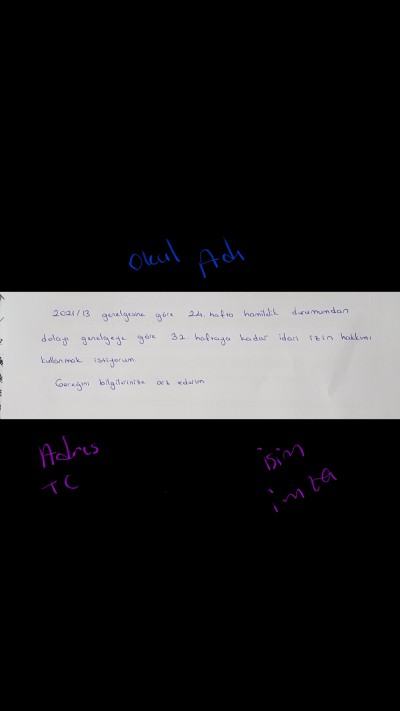 Okul Adı
2021/13 genelgesine göre 24. hafta hamilelik durumumdan
dolayı genelgeye göre 32. haftaya kadar idari izin hakkımı
kullanmak istiyorum.
Gereğini bilgilerinize arz ederim
Adres
isim
TC
imza